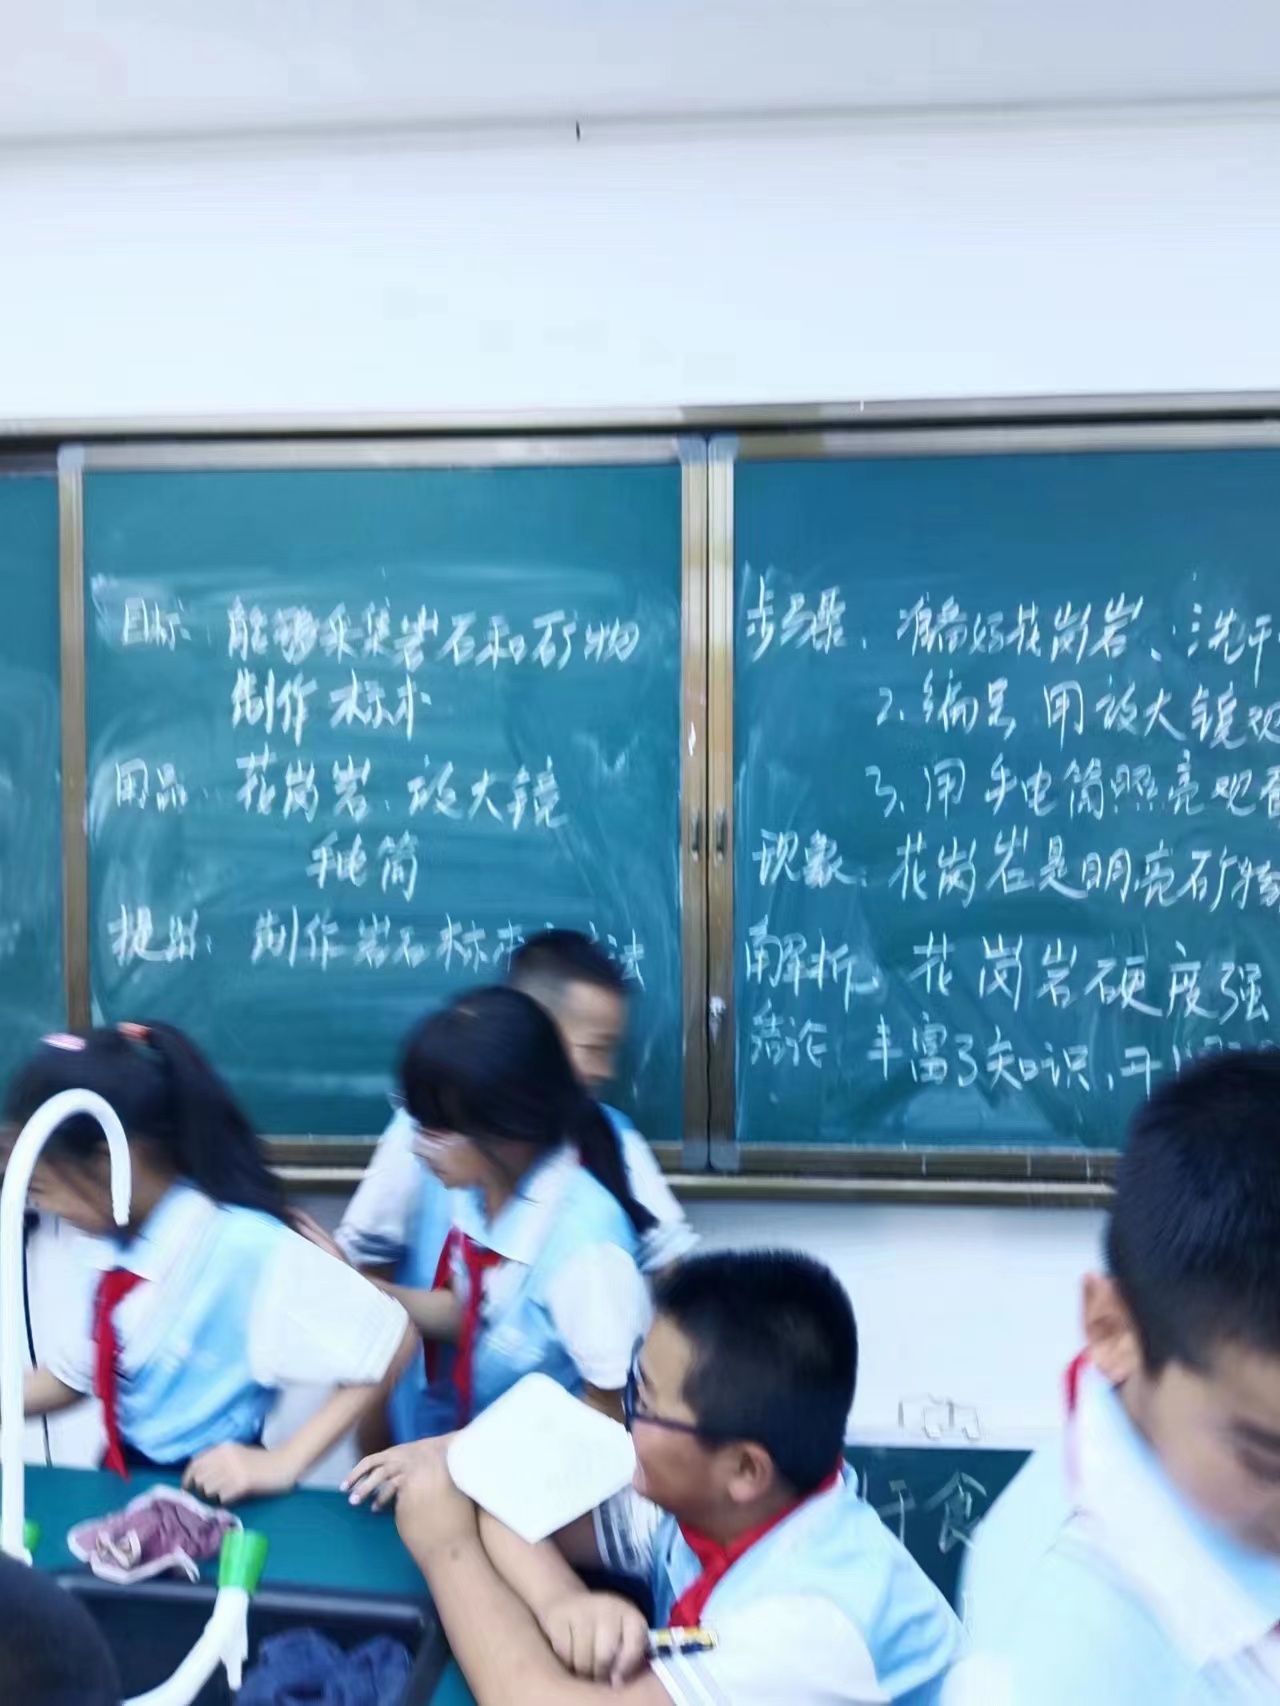 目标: 能够采集岩石和矿物
制作标本
用品: 花岗岩、放大镜
手电筒
提出: 制作岩石标本 法
步骤: 准备好花岗岩、洗干
2、编号 用放大镜观
3、用手电筒照亮观看
现象: 花岗岩是明亮矿物
解析: 花岗岩硬度强
结论: 丰富了知识、开
干食